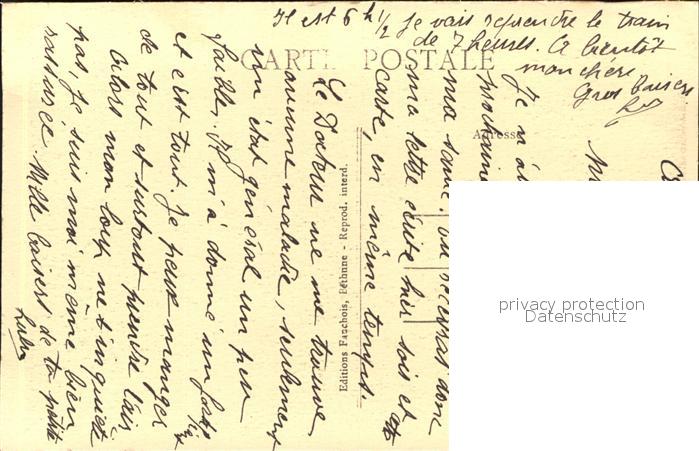 Il est 6 h 1/2 je vais reprendre le train
de 7 heures. A bientôt
mon chéri.
Gros baisers
CARTE POSTALE
Adresse
Je
prochaine
ma lettre écrite hier soir et
carte, en même temps.
Le Docteur ne me trouve
aucune maladie, seulement
un état général un peu
faible. Il m'a donné un
et c'est tout. Je peux manger
de tout et surtout prendre l'air
Alors mon loup ne t'inquiète
pas, je suis moi même bien
rassurée. Mille baisers de ta petite
Editions Fauchois, Béthune - Reprod. interd.
privacy protection
Datenschutz